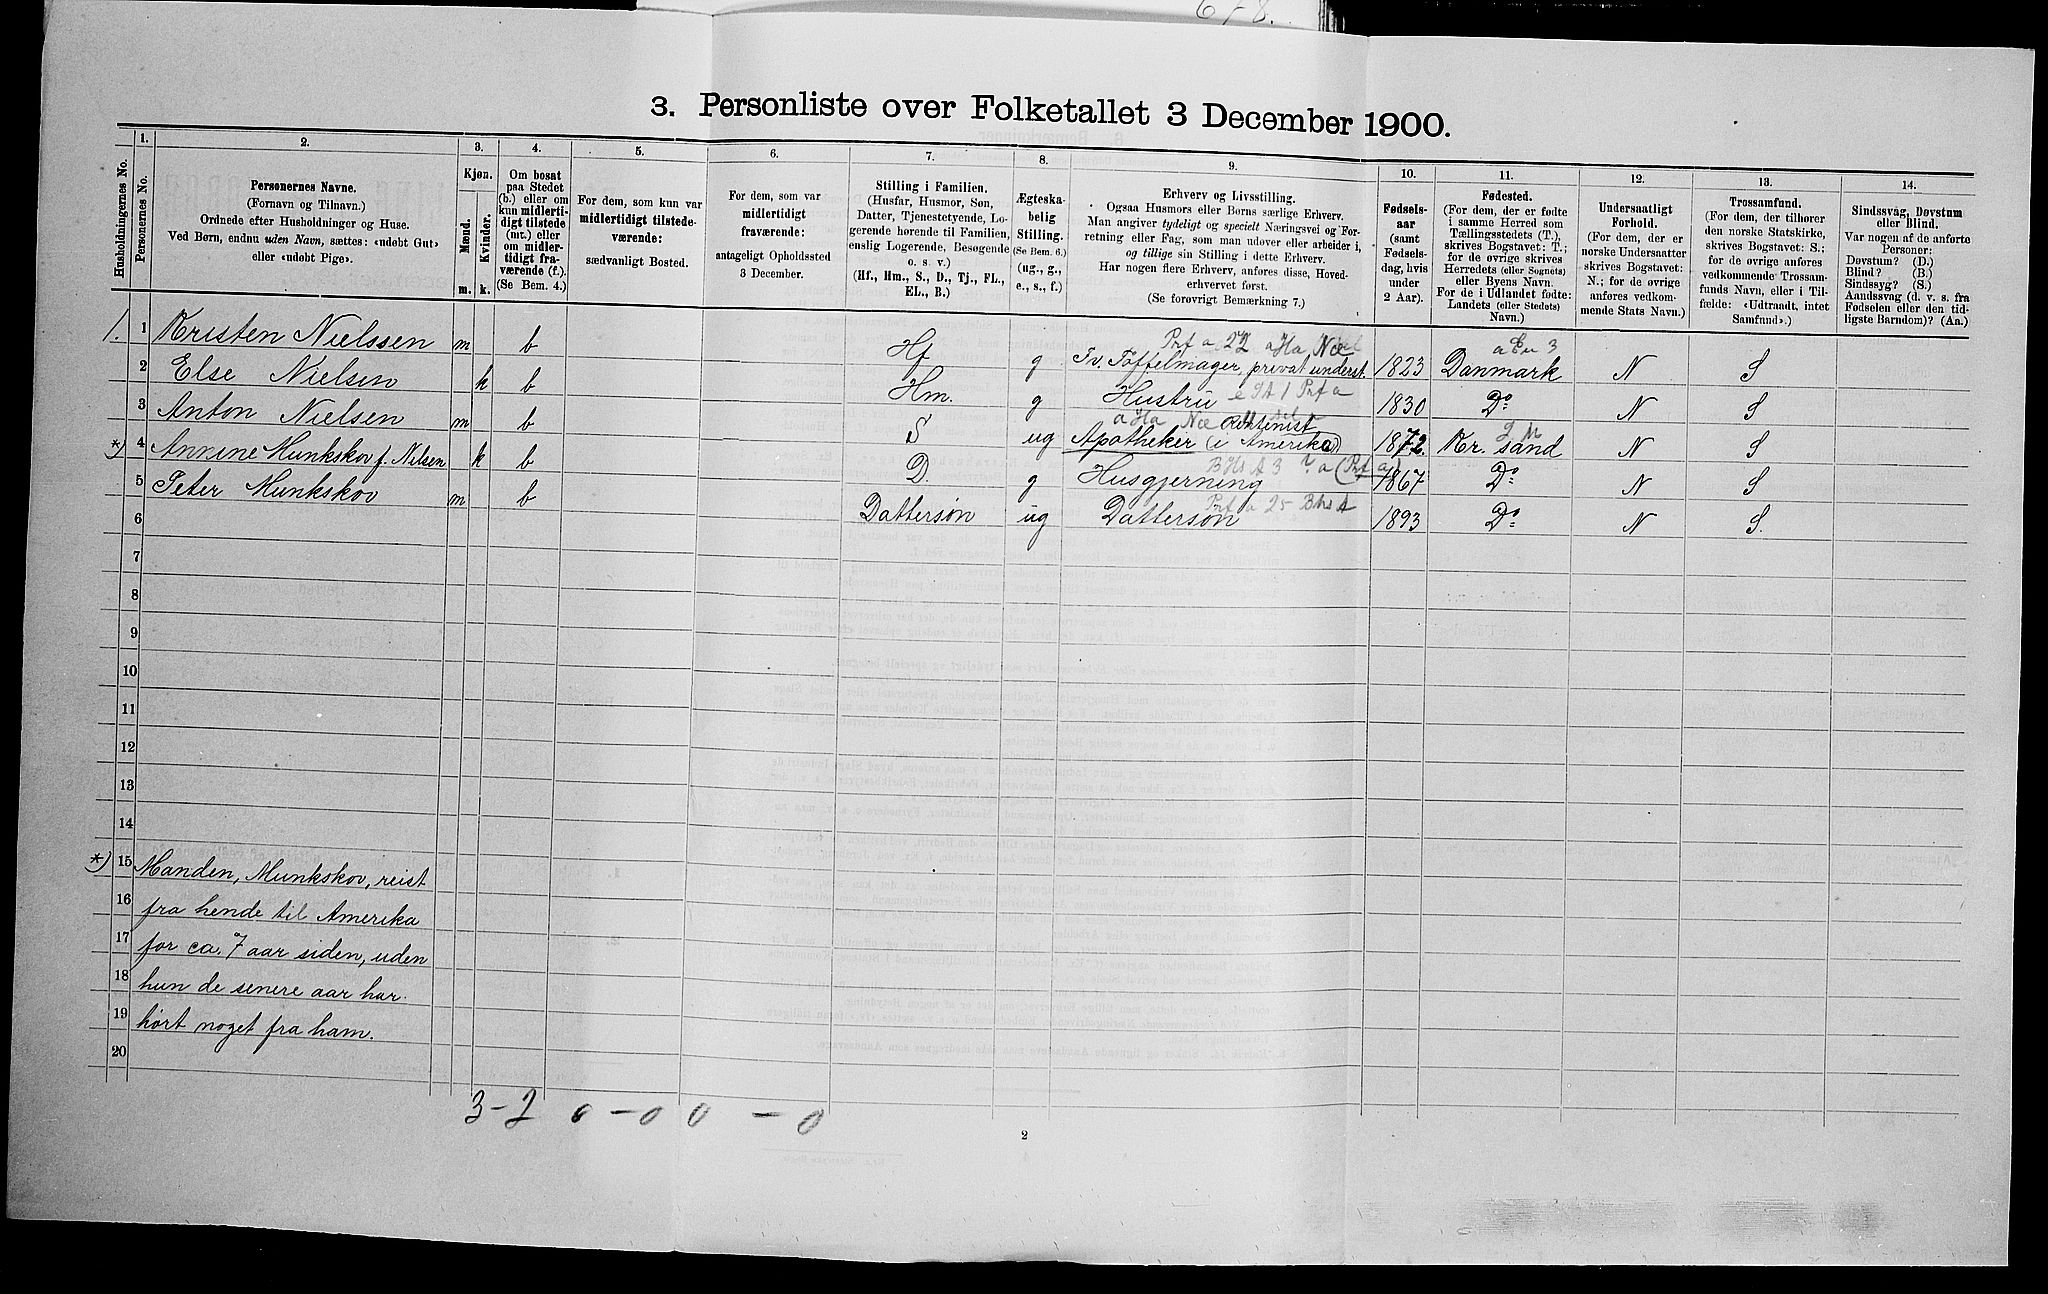 678.
3. Personliste over Folketallet 3 December 1900.
Husholdningernes No.
1.
Personernes No.
2.
Personernes Navne.
(Fornavn og Tilnavn.)
Ordnede efter Husholdninger og Huse.
Ved Børn, endnu uden Navn, sættes: «udøbt Gut»
eller «udøbt Pige».
3.
Kjøn.
Mænd.
Kvinder.
m.
k.
4.
Om bosat
paa Stedet
(b.) eller om
kun midlerti-
digt tilstede
(mt.) eller
om midler-
tidigt fra-
værende (f.).
(Se Bem. 4.)
5.
For dem, som kun var
midlertidigt tilstede-
værende:
sædvanligt Bosted.
6.
For dem, som var
midlertidigt
fraværende:
antageligt Opholdssted
3 December.
7.
Stilling i Familien.
(Husfar, Husmor, Søn,
Datter, Tjenestetyende, Lo-
gerende hørende til Familien,
enslig Logerende, Besøgende
o. s. v.)
(Hf., Hm., S., D., Tj., FL.,
EL., B.)
8.
Ægteska-
belig
Stilling.
(Se Bem. 6.)
(ug., g.,
e., s., f.)
9.
Erhverv og Livsstilling.
Ogsaa Husmors eller Børns særlige Erhverv.
Man angiver tydeligt og specielt Næringsvei og For-
retning eller Fag, som man udøver eller arbeider i,
og tillige sin Stilling i dette Erhverv.
Har nogen flere Erhverv, anføres disse, Hoved-
erhvervet først.
(Se forøvrigt Bemærkning 7.)
10.
Fødsels-
aar
(samt
Fødsels-
dag, hvis
under
2 Aar).
11.
Fødested.
(For dem, der er fødte
i samme Herred som
Tællingsstedets (T.),
skrives Bogstavet: T.;
for de øvrige skrives
Herredets (eller Sognets)
eller Byens Navn.
For de i Udlandet fødte:
Landets (eller Stedets)
Navn.)
12.
Undersaatligt
Forhold.
(For dem, der er
norske Undersaatter
skrives Bogstavet:
N.; for de øvrige
anføres vedkom-
mende Stats Navn.)
13.
Trossamfund.
(For dem, der tilhører
den norske Statskirke,
skrives Bogstavet: S.;
for de øvrige anføres
vedkommende Trossam-
funds Navn, eller i Til-
fælde: «Udtraadt, intet
Samfund».)
14.
Sindssvag, Døvstum
eller Blind.
Var nogen af de anførte
Personer:
Døvstum? (D.)
Blind? (B.)
Sindssyg? (S.)
Aandssvag (d. v. s. fra
Fødselen eller den tid-
ligste Barndom)? (Aa.)
1. 1 Kristen Nielssen m b Hf g Fv. Toffelmager, privat underst. 1823 Danmark N S
2 Else Nielsen k b Hm. g Hustru 1830 Do N S
3 Anton Nielsen m b S ug Apotheker (i Amerika) 1872. Kr. sand N S
*) 4 Annine Munkskov f. Nielsen k b D. g Husgjerning 1867 Do N S
5 Peter Munkskov m b Dattersøn ug Dattersøn 1893 Do N S.
6
7
8
9
10
11
12
13
14
*) 15 Manden, Munkskov, reist
16 fra hende til Amerika
17 for ca. 7 aar siden, uden
18 hun de senere aar har
19 hørt noget fra ham.
20
3-2 0-0 0-0
2